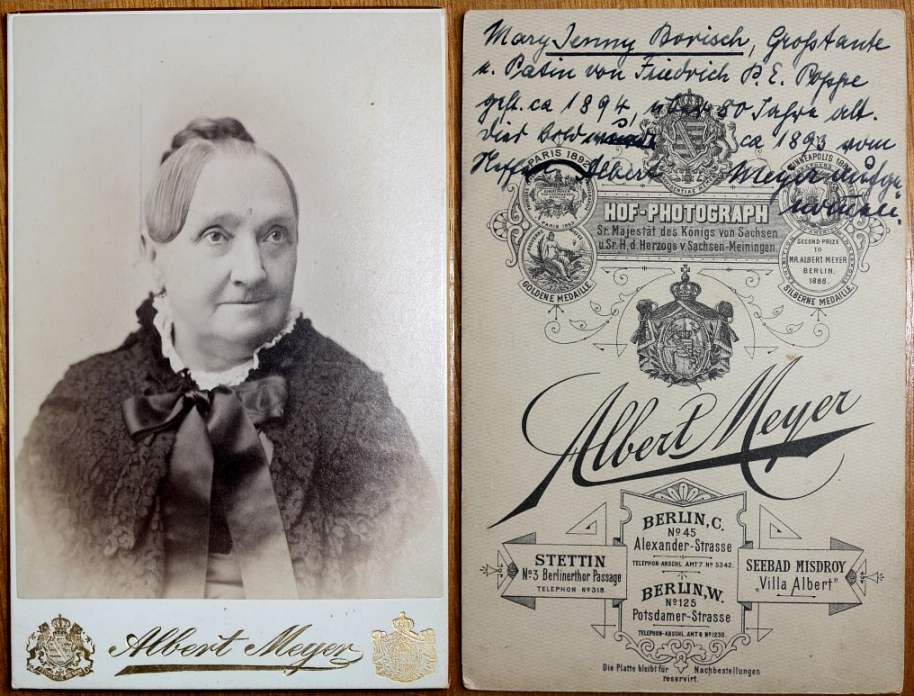 Albert Meyer
Mary Jenny Borisch, Großtante
u. Patin von Friedrich P. E. Poppe
gest. ca 1894, über 80 Jahre alt.
Dies Bild ca 1893 vom
Neffen Albert Meyer aufge
nommen.
PARIS 1892
GOLDENE MEDAILLE
MINNEAPOLIS
SECOND PRIZE
TO
MR. ALBERT MEYER
BERLIN,
1888
SILBERNE MEDAILLE
HOF-PHOTOGRAPH
Sr. Majestät des Königs von Sachsen
u. Sr. H. d. Herzogs v. Sachsen-Meiningen.
Albert Meyer
BERLIN, C.
No 45
Alexander-Strasse
TELEPHON-ANSCHL. AMT 7 No 5342.
STETTIN
No 3 Berlinerthor Passage
TELEPHON No 318.
SEEBAD MISDROY
"Villa Albert"
BERLIN, W.
No 125
Potsdamer-Strasse
TELEPHON-ANSCHL. AMT 6 No 1230.
Die Platte bleibt für Nachbestellungen
reservirt.